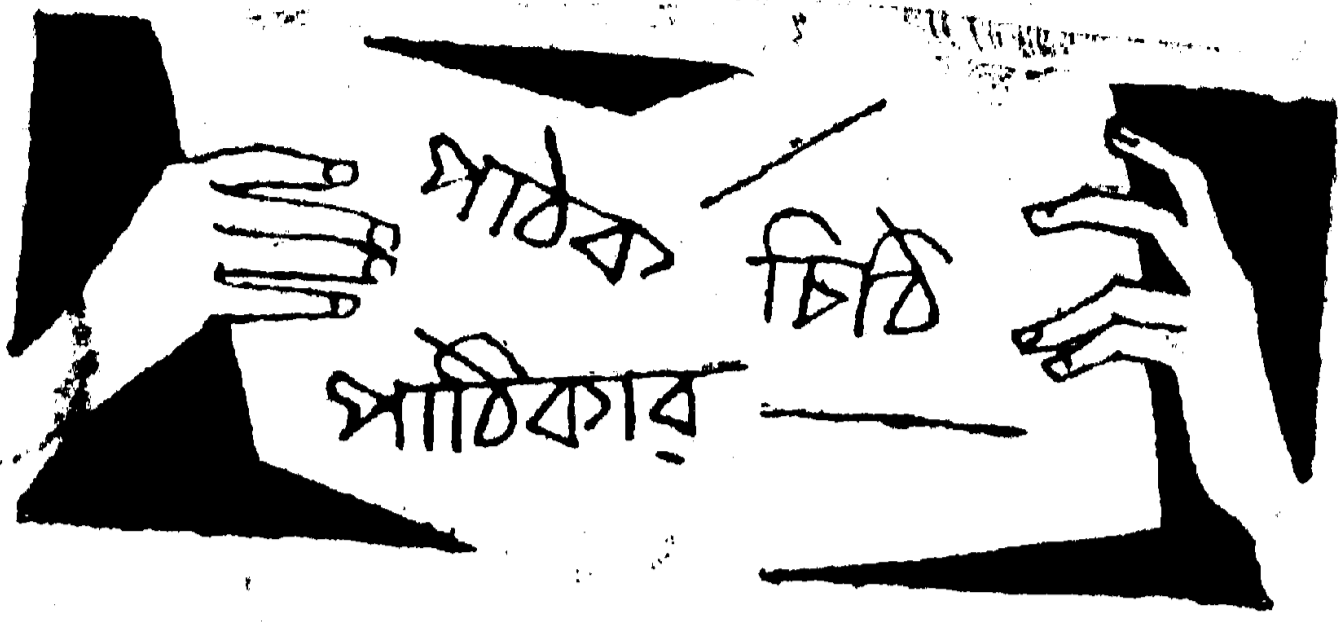 পাঠক
পাঠিকার
চিঠি